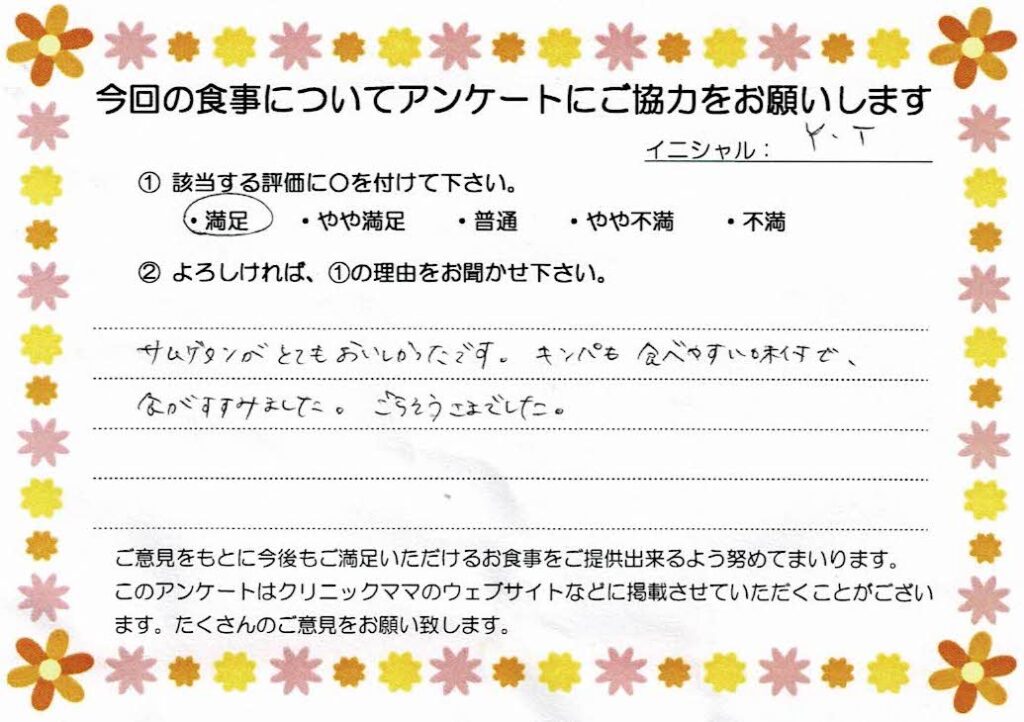 今回の食事についてアンケートにご協力をお願いします
イニシャル： Y.T
① 該当する評価に〇を付けて下さい。
・満足 ・やや満足 ・普通 ・やや不満 ・不満
② よろしければ、①の理由をお聞かせ下さい。
サムゲタンがとてもおいしかったです。キンパも食べやすい味付で、
食がすすみました。ごちそうさまでした。
ご意見をもとに今後もご満足いただけるお食事をご提供出来るよう努めてまいります。
このアンケートはクリニックママのウェブサイトなどに掲載させていただくことがござい
ます。たくさんのご意見をお願い致します。